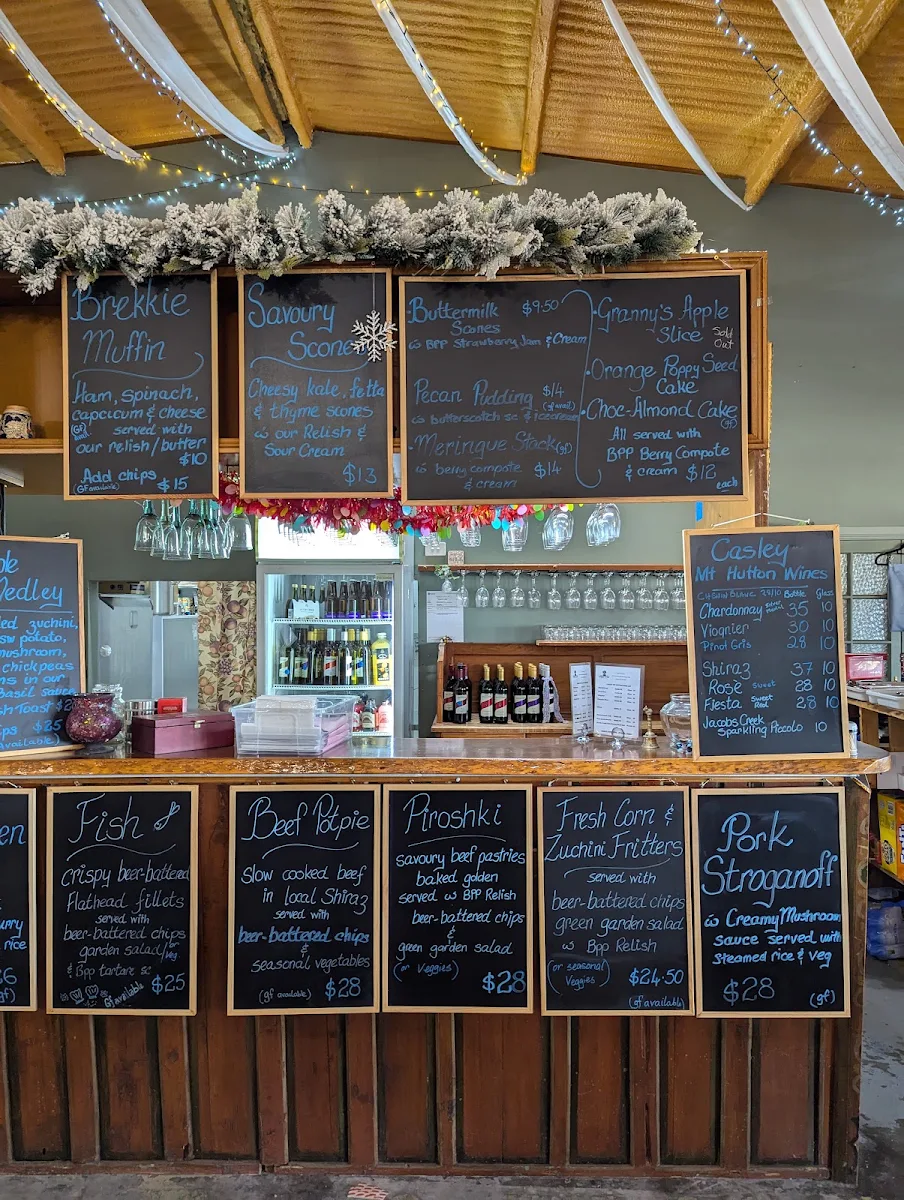 Brekkie
Muffin
Ham, spinach,
capcicum & cheese
(GF avail) served with
our relish/butter
$10
Add chips $15
(GF available)
Savoury
Scone
Cheesy kale, fetta
& thyme scones
w our Relish &
Sour Cream
$13
• Buttermilk $9.50
Scones
w BPP Strawberry Jam & Cream
Pecan Pudding $14
(gf avail)
w butterscotch sc & icecream
• Meringue Stack (gf)
w berry compote $14
& cream
• Granny's Apple
Slice Sold Out
• Orange Poppy Seed
Cake
• Choc-Almond Cake
(gf)
All served with
BPP Berry Compote
& cream $12
each
Medley
zuchini,
potato,
mushroom,
chickpeas
in our
Basil sauce
Toast $2
$25
available)
Casley
Mt Hutton Wines
Bottle Glass
Chardonnay 35 10
Viognier 30 10
Pinot Gris 28 10
Shiraz 37 10
Rosie Sweet 28 10
Fiesta Sweet Red 28 10
Jacobs Creek
Sparkling Piccolo 10
en
urry
rice
6
gf)
Fish
crispy beer-battered
flathead fillets
served with
beer-battered chips
garden salad/or veg
& Bpp tartare sc
gf available $25
Beef Potpie
Slow cooked beef
in local Shiraz
served with
beer-battered chips
&
seasonal vegetables
(gf available) $28
Piroshki
savoury beef pastries
baked golden
served w BPP Relish
beer-battered chips
&
green garden salad
(or Veggies)
$28
Fresh Corn &
Zuchini Fritters
served with
beer-battered chips
green garden salad
w Bpp Relish
(or seasonal
Veggies) $24.50
(gf available)
Pork
Stroganoff
w Creamy Mushroom
sauce served with
steamed rice & veg
$28 (gf)